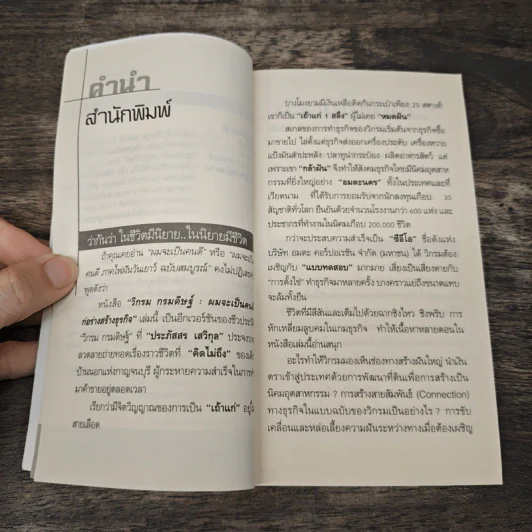 คำนำ
สำนักพิมพ์
ว่ากันว่า ในชีวิตมีนิยาย..ในนิยายมีชีวิต
ถ้าคุณเคยอ่าน "ผมจะเป็นคนดี" หรือ "ผมจะเป็น
คนดี ภาคไฟฝันวันเยาว์ ฉบับสมบูรณ์" คงไม่ปฏิเสธ
พูดดังว่า
หนังสือ "วิกรม กรมดิษฐ์ : ผมจะเป็นคน
ก่อร่างสร้างธุรกิจ" เล่มนี้ เป็นอีกเวอร์ชันของชีวประวัติ
"วิกรม กรมดิษฐ์" ที่ "ประภัสสร เสวิกุล" ประจง
ลวดลายถ่ายทอดเรื่องราวชีวิตที่ "คิดไม่ถึง" ของ
บ้านนอกแห่งกาญจนบุรี ผู้กระหายความสำเร็จในการทำ
มาค้าขายอยู่ตลอดเวลา
เรียกว่ามีจิตวิญญาณของการเป็น "เถ้าแก่" อยู่ใน
สายเลือด
บางโมงยามมีเงินเหลือติดก้นกระเป๋าเพียง 25 สตางค์
เขาก็เป็น "เถ้าแก่ 1 สลึง" ผู้ไม่เคย "หมดฝัน"
สเกลของการทำธุรกิจของวิกรมเริ่มต้นจากธุรกิจซื้อ
มาขายไป ไล่ตั้งแต่ธุรกิจส่งออกเครื่องประดับ เครื่องหวาย
แป้งมันสำปะหลัง ปลาทูน่ากระป๋อง ผลิตอาหารสัตว์ แต่
เพราะเขา "กล้าฝัน" จึงทำให้สังคมธุรกิจไทยมีนิคมอุตสาห
กรรมที่ยิ่งใหญ่อย่าง "อมตะนคร" ทั้งในประเทศและที่
เวียดนาม ที่ได้รับการยอมรับจากนักลงทุนเกือบ 30
สัญชาติทั่วโลก ยืนยันด้วยจำนวนโรงงานกว่า 600 แห่ง และ
ประชากรที่ทำงานในนิคมเกือบ 200,000 ชีวิต
กว่าจะประสบความสำเร็จเป็น "ซีอีโอ" ชื่อดังแห่ง
บริษัท อมตะ คอร์ปอเรชัน จำกัด (มหาชน) ได้ วิกรมต้อง
เผชิญกับ "แบบทดสอบ" มากมาย เสี่ยงเป็นเสี่ยงตายกับ
"การตั้งไข่" ทำธุรกิจมาหลายครั้ง บางคราวแย่ถึงขนาดแทบ
จะล้มทั้งยืน
ชีวิตที่มีสีสันและเต็มไปด้วยฉากชิงไหว ชิงพริบ การ
หักเหลี่ยมลูบคมในเกมธุรกิจ ทำให้เนื้อหาหลายตอนใน
หนังสือเล่มนี้อ่านสนุก
อะไรทำให้วิกรมมองเห็นช่องทางสร้างฝันใหญ่ นำเงิน
ตราเข้าสู่ประเทศด้วยการพัฒนาที่ดินเพื่อการสร้างเป็น
นิคมอุตสาหกรรม ? การสร้างสายสัมพันธ์ (Connection)
ทางธุรกิจในแบบฉบับของวิกรมเป็นอย่างไร ? การขับ
เคลื่อนและหล่อเลี้ยงความฝันระหว่างทางเมื่อต้องเผชิญ